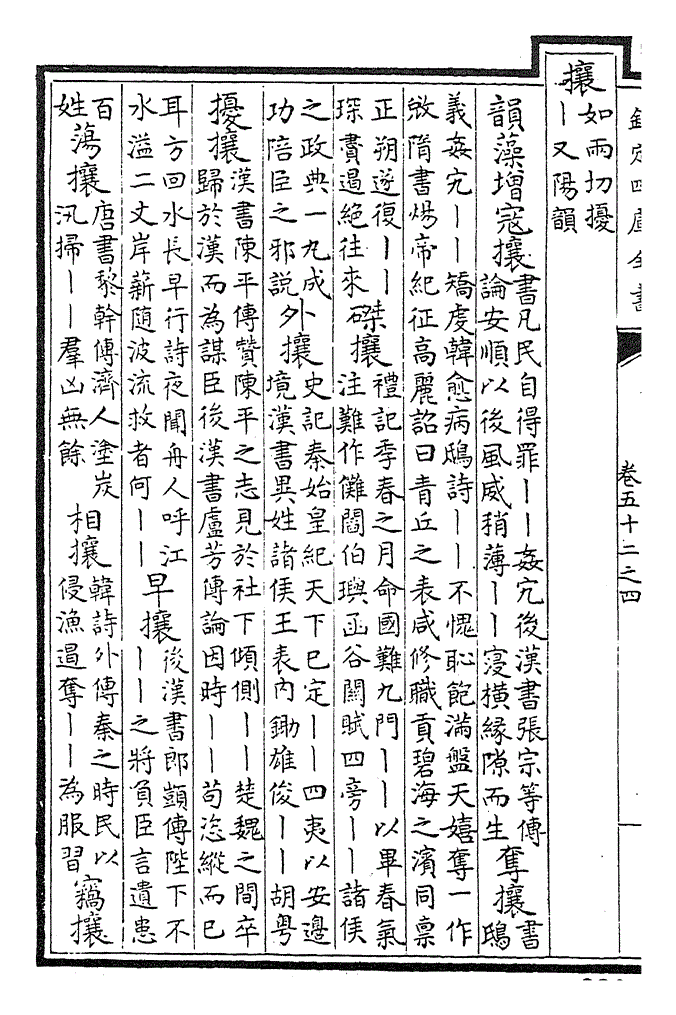 欽定四庫全書
卷五十二之四
攘
如兩切擾
丨又陽韻
韻藻增寇攘
書凡民自得罪丨丨姦宄後漢書張宗等傳
論安順以後風威稍薄丨丨寖橫緣隙而生
奪攘
書
鴟
義姦宄丨丨矯虔韓愈病鴟詩丨丨不愧恥飽滿盤天嬉奪一作
敓隋書煬帝紀征高麗詔曰青丘之表咸修職貢碧海之濱同禀
正朔遂復丨丨
琛賮遏絶往來
磔攘
禮記季春之月命國難九門丨丨以畢春氣
注難作儺閻伯璵函谷關賦四旁丨丨諸侯
之政典一九成
功陪臣之邪說
外攘
史記秦始皇紀天下已定丨丨四夷以安邊
境漢書異姓諸侯王表內鋤雄俊丨丨胡粤
擾攘
漢書陳平傳贊陳平之志見於社下傾側丨丨楚魏之間卒
歸於漢而為謀臣後漢書盧芳傳論因時丨丨苟恣縱而已
耳方回水長早行詩夜聞舟人呼江
水溢二丈岸薪隨波流救者何丨丨
早攘
後漢書郎顗傳陛下不
丨丨之將負臣言遺患
百
姓
蕩攘
唐書黎幹傳濟人塗炭
汛掃丨丨羣凶無餘
相攘
韓詩外傳秦之時民以
侵漁遏奪丨丨為服習
竊攘